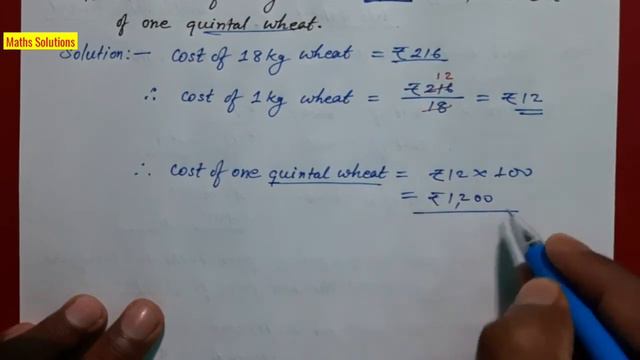 of one quintal wheat.
Maths Solutions
Solution:— Cost of 18kg wheat = ₹216
∴ cost of 1kg wheat = ₹216/18 = ₹12
12
∴ Cost of one quintal wheat = ₹12 × 100
= ₹1,200